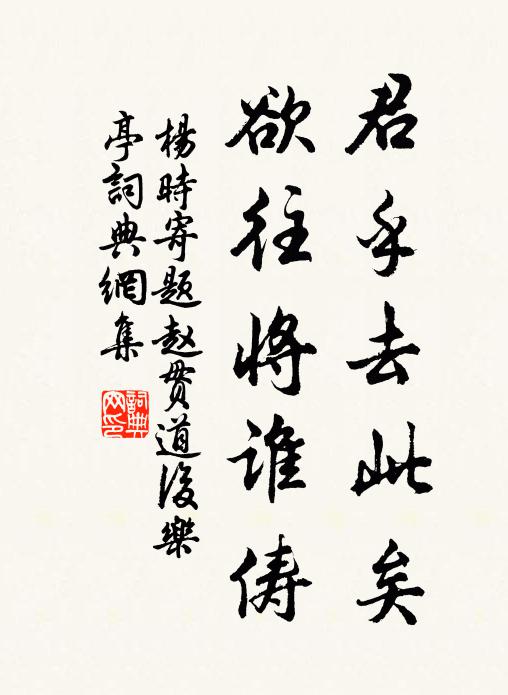 君乎去此矣
欲往将谁俦
楊時寄題趙贯道後樂
亭詞典網集
詞典
网印